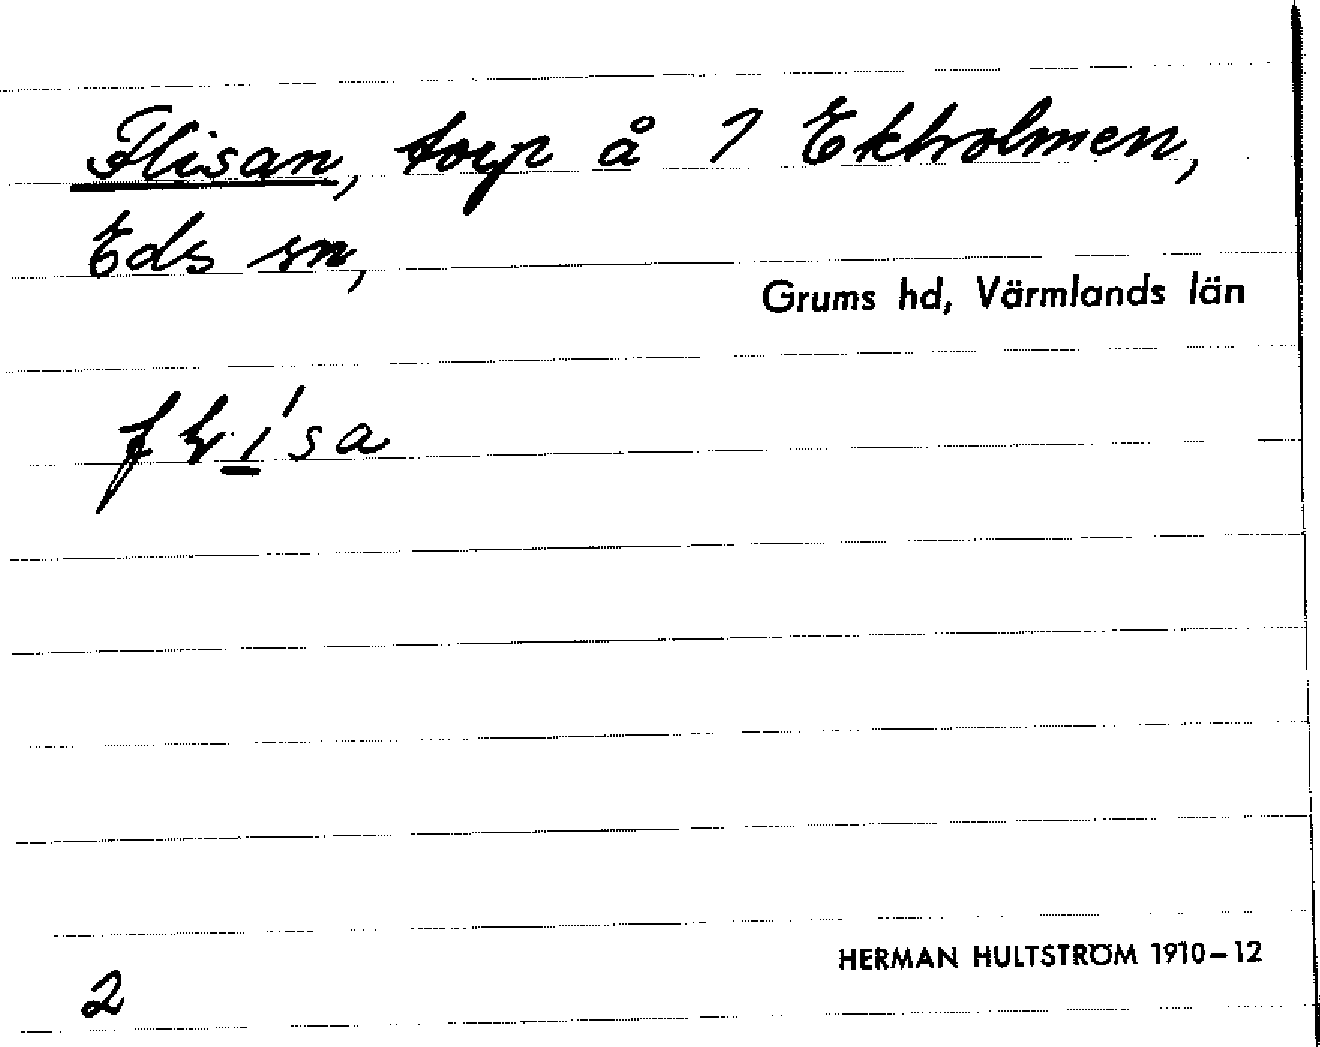 Flisan, torp å 1 Ekholmen,
Eds sn,
Grums hd, Värmlands län
HERMAN HULTSTRÖM 1910-12
2